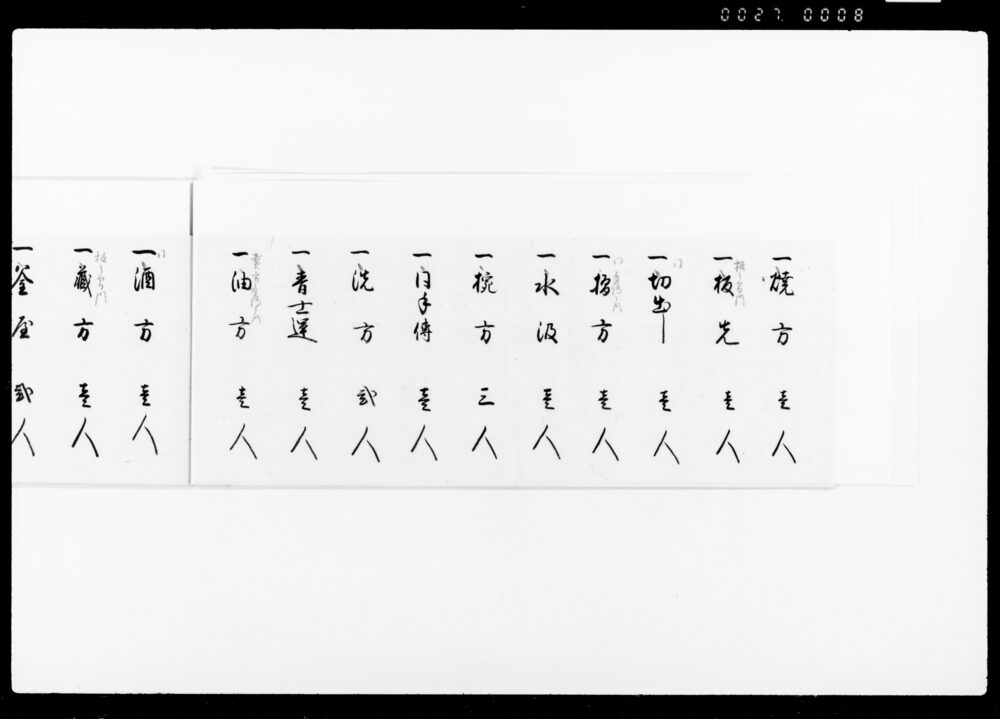 0027 0008
一焼方 壱人
一板先 壱人
一切出し 壱人
一摺方 壱人
一水汲 壱人
一椀方 三人
一同手傳 壱人
一洗方 弐人
一青士運 壱人
一油方 壱人
一酒方 壱人
一蔵方 壱人
一釜屋 弐人